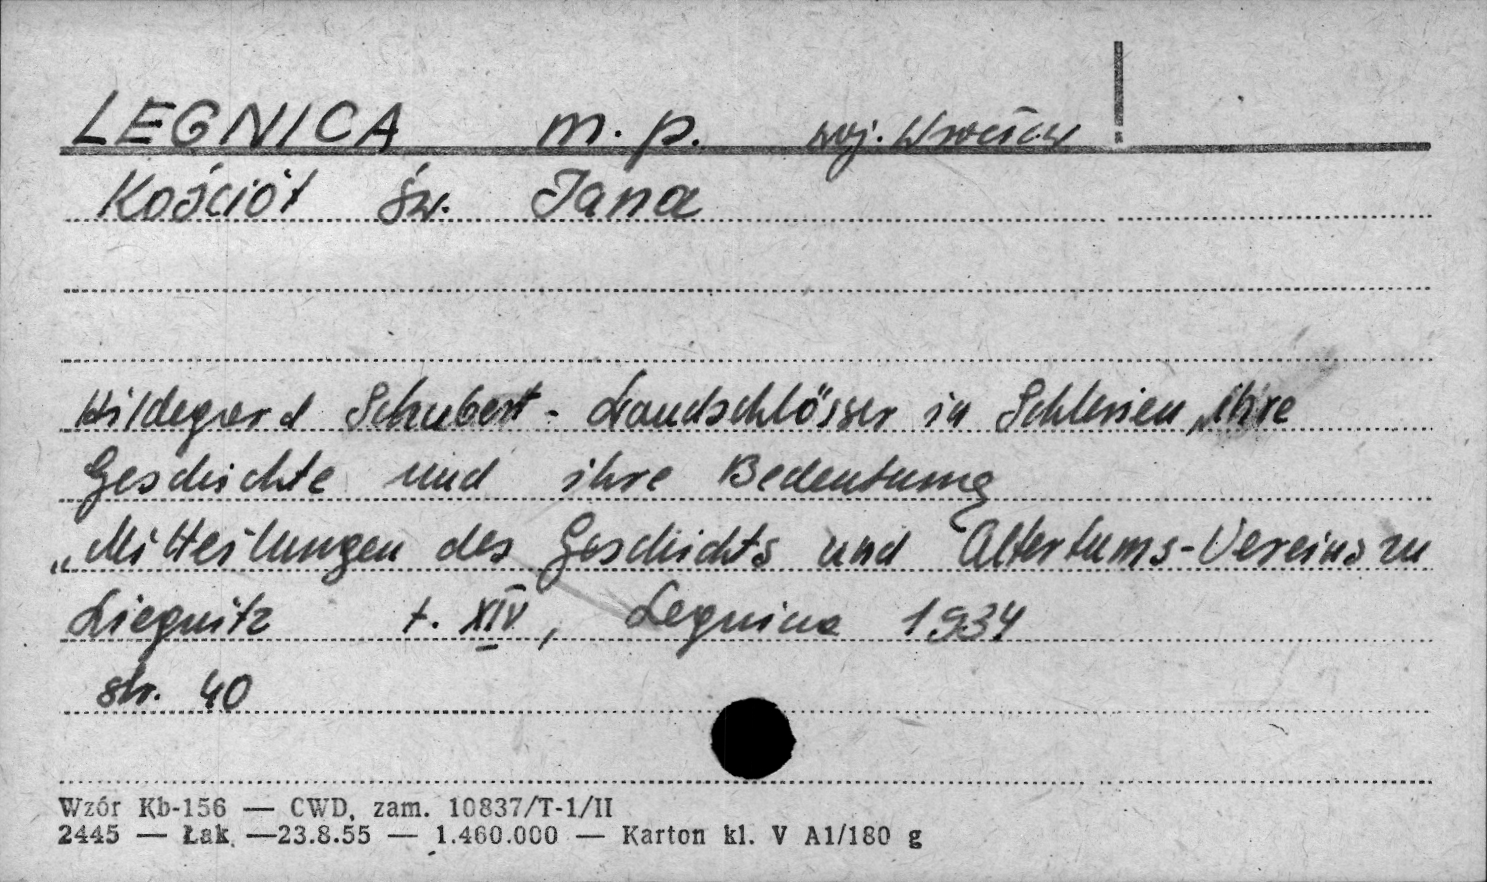 LEGNICA m. p. woj. Wrocław
Kościół św. Jana
Hildegard Schubert - Landschlösser in Schlesien, ihre
Geschichte und ihre Bedeutung
„Mitteilungen des Geschichts und Altertums-Vereins zu
Liegnitz t. XIV, Legnica 1934
str. 40
Wzór Kb-156 — CWD, zam. 10837/T-1/II
2445 — Łak. —23.8.55 — 1.460.000 — Karton kl. V A1/180 g